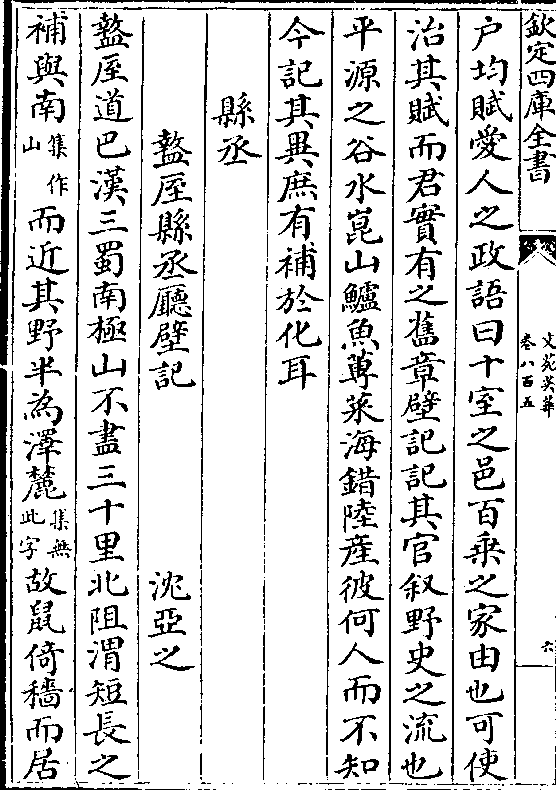 欽定四庫全書
文苑英華
卷八百五
六
户均賦愛人之政語曰十室之邑百乗之家由也可使
治其賦而君實有之舊章壁記記其官叙野史之流也
平源之谷水崑山鱸魚蓴菜海錯陸産彼何人而不知
今記其異庶有補於化耳
縣丞
盩厔縣丞廳壁記 沈亞之
盩厔道巴漢三蜀南極山不盡三十里北阻渭短長之
補與南集作山而近其野半為澤麓集無此字故鼠倚穡而居